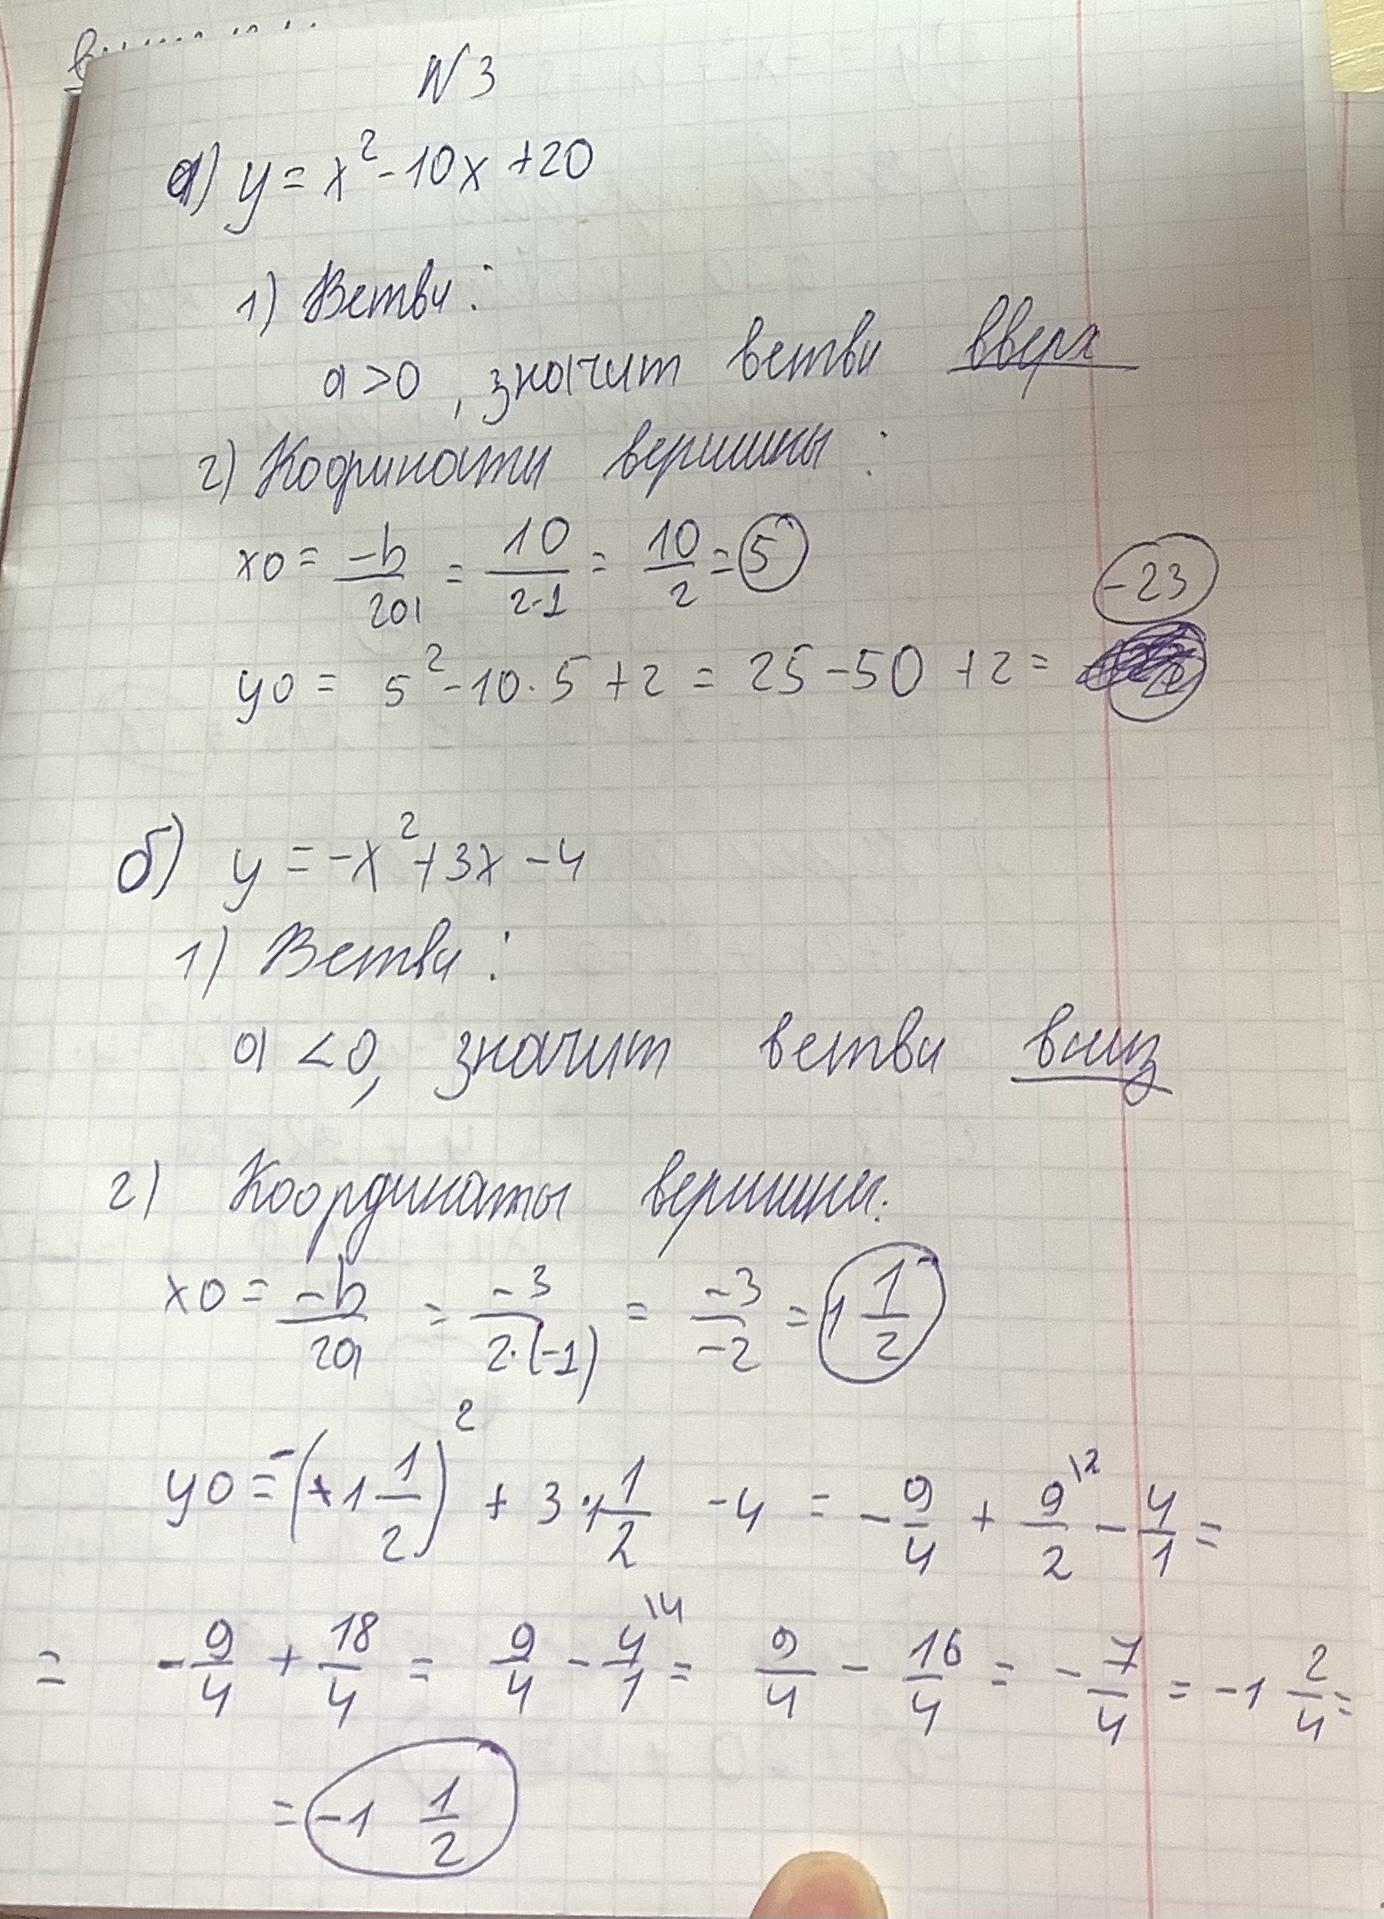 N 3
а) y = x² - 10x + 20
1) Ветви:
a > 0, значит ветви вверх
2) Кординаты вершины:
x0 = -b/2a = 10/2·1 = 10/2 = 5
-23
y0 = 5² - 10·5 + 2 = 25 - 50 + 2 =
б) y = -x² + 3x - 4
1) Ветви:
a < 0, значит ветви вниз
2) Координаты вершины:
x0 = -b/2a = -3/2·(-1) = -3/-2 = 1 1/2
y0 = -(+1 1/2)² + 3·1 1/2 - 4 = -9/4 + 9/2 \2 - 4/1 =
= -9/4 + 18/4 = 9/4 - 4/1 \4 = 9/4 - 16/4 = -7/4 = -1 2/4 =
= -1 1/2